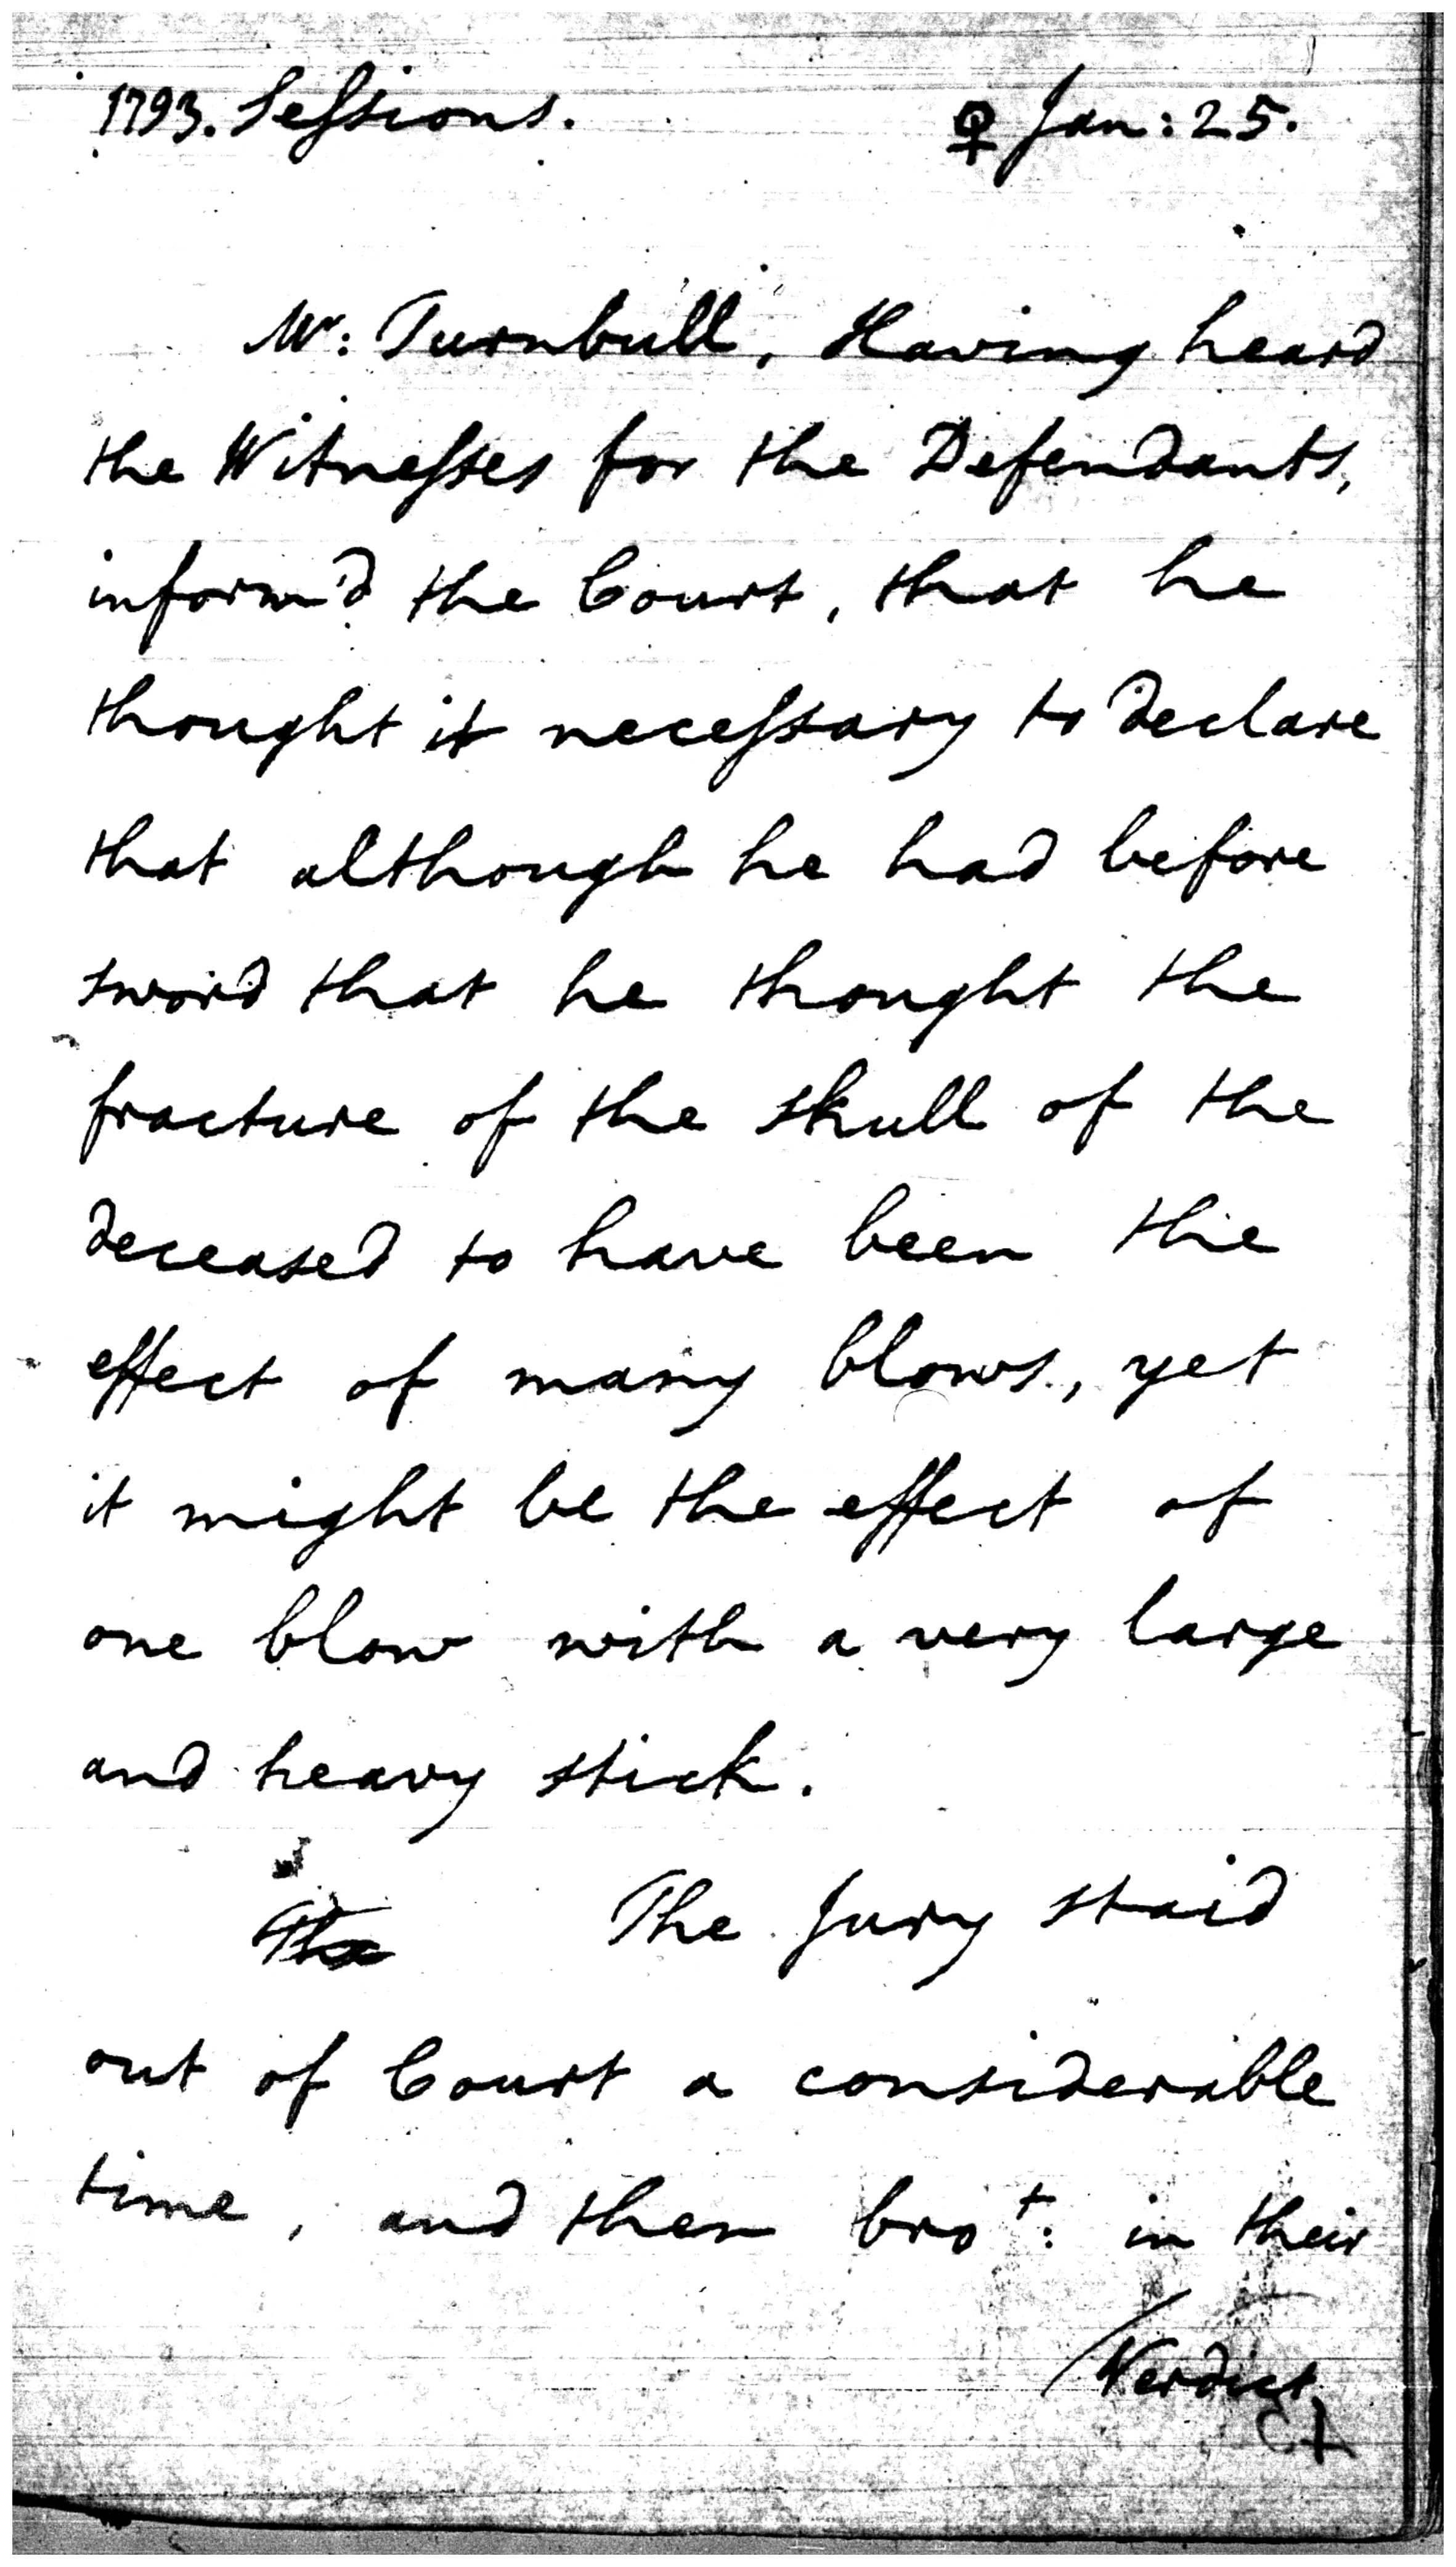 1793. Seſsions. ♀ Jan: 25.
Mr: Turnbull, Having heard
the Witneſses for the Defendants,
inform'd the Court, that he
thought it neceſsary to declare
that although he had before
sword that he thought the
fracture of the skull of the
deceased to have been the
effect of many blows, yet
it might be the effect of
one blow with a very large
and heavy stick.
The The Jury staid
out of Court a considerable
time, and then brot: in their
/Verdict,